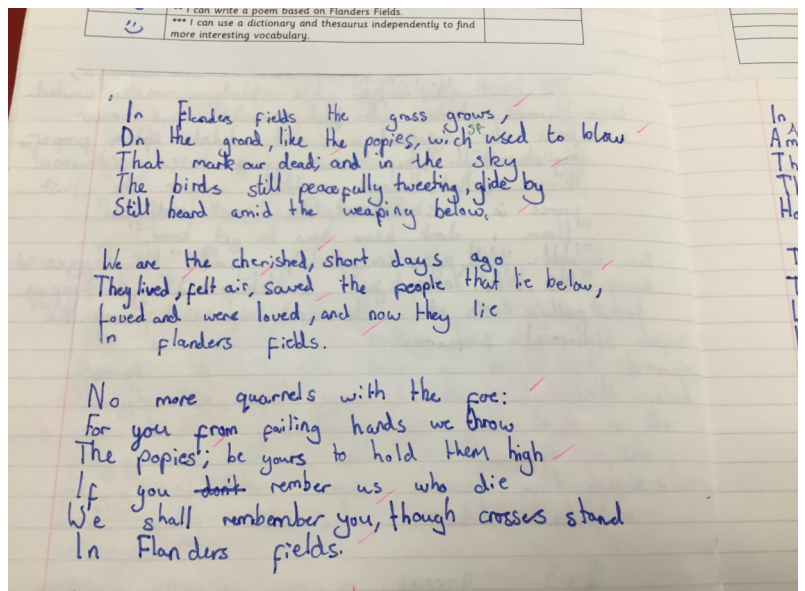 ** I can write a poem based on Flanders Fields.
*** I can use a dictionary and thesaurus independently to find
more interesting vocabulary.
In Flanders fields the grass grows,
On the grond, like the popies, wich sp used to blow
That mark our dead; and in the sky
The birds still peacefully tweeting, glide by
Still heard amid the weaping below.
We are the cherished, short days ago
They lived, felt air, saved the people that lie below,
Loved and were loved, and now they lie
In flanders fields.
No more quarrels with the foe:
For you from failing hands we throw
The popies; be yours to hold them high
If you don't rember us who die
We shall rembember you, though crosses stand
In Flanders fields.
In
Am
Th
Th
Ho
T
T
L